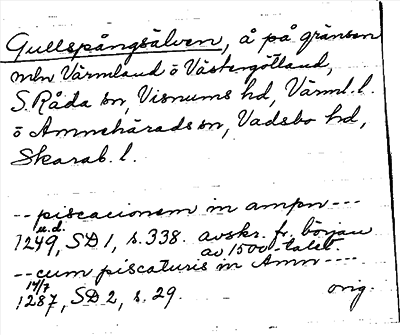 Gullspångsälven, å på gränsen
mln Värmland o Västergötland,
S. Råda sn, Visnums hd, Värml. l.
o Amnehärads sn, Vadsbo hd,
Skarab. l.
-- piscacionem in ampn ---
u.d.
1249, SD 1, s. 338. avskr. fr. början
av 1500-talet.
-- cum piscaturis in Amn ----
14/7
1287, SD 2, s. 29. orig.